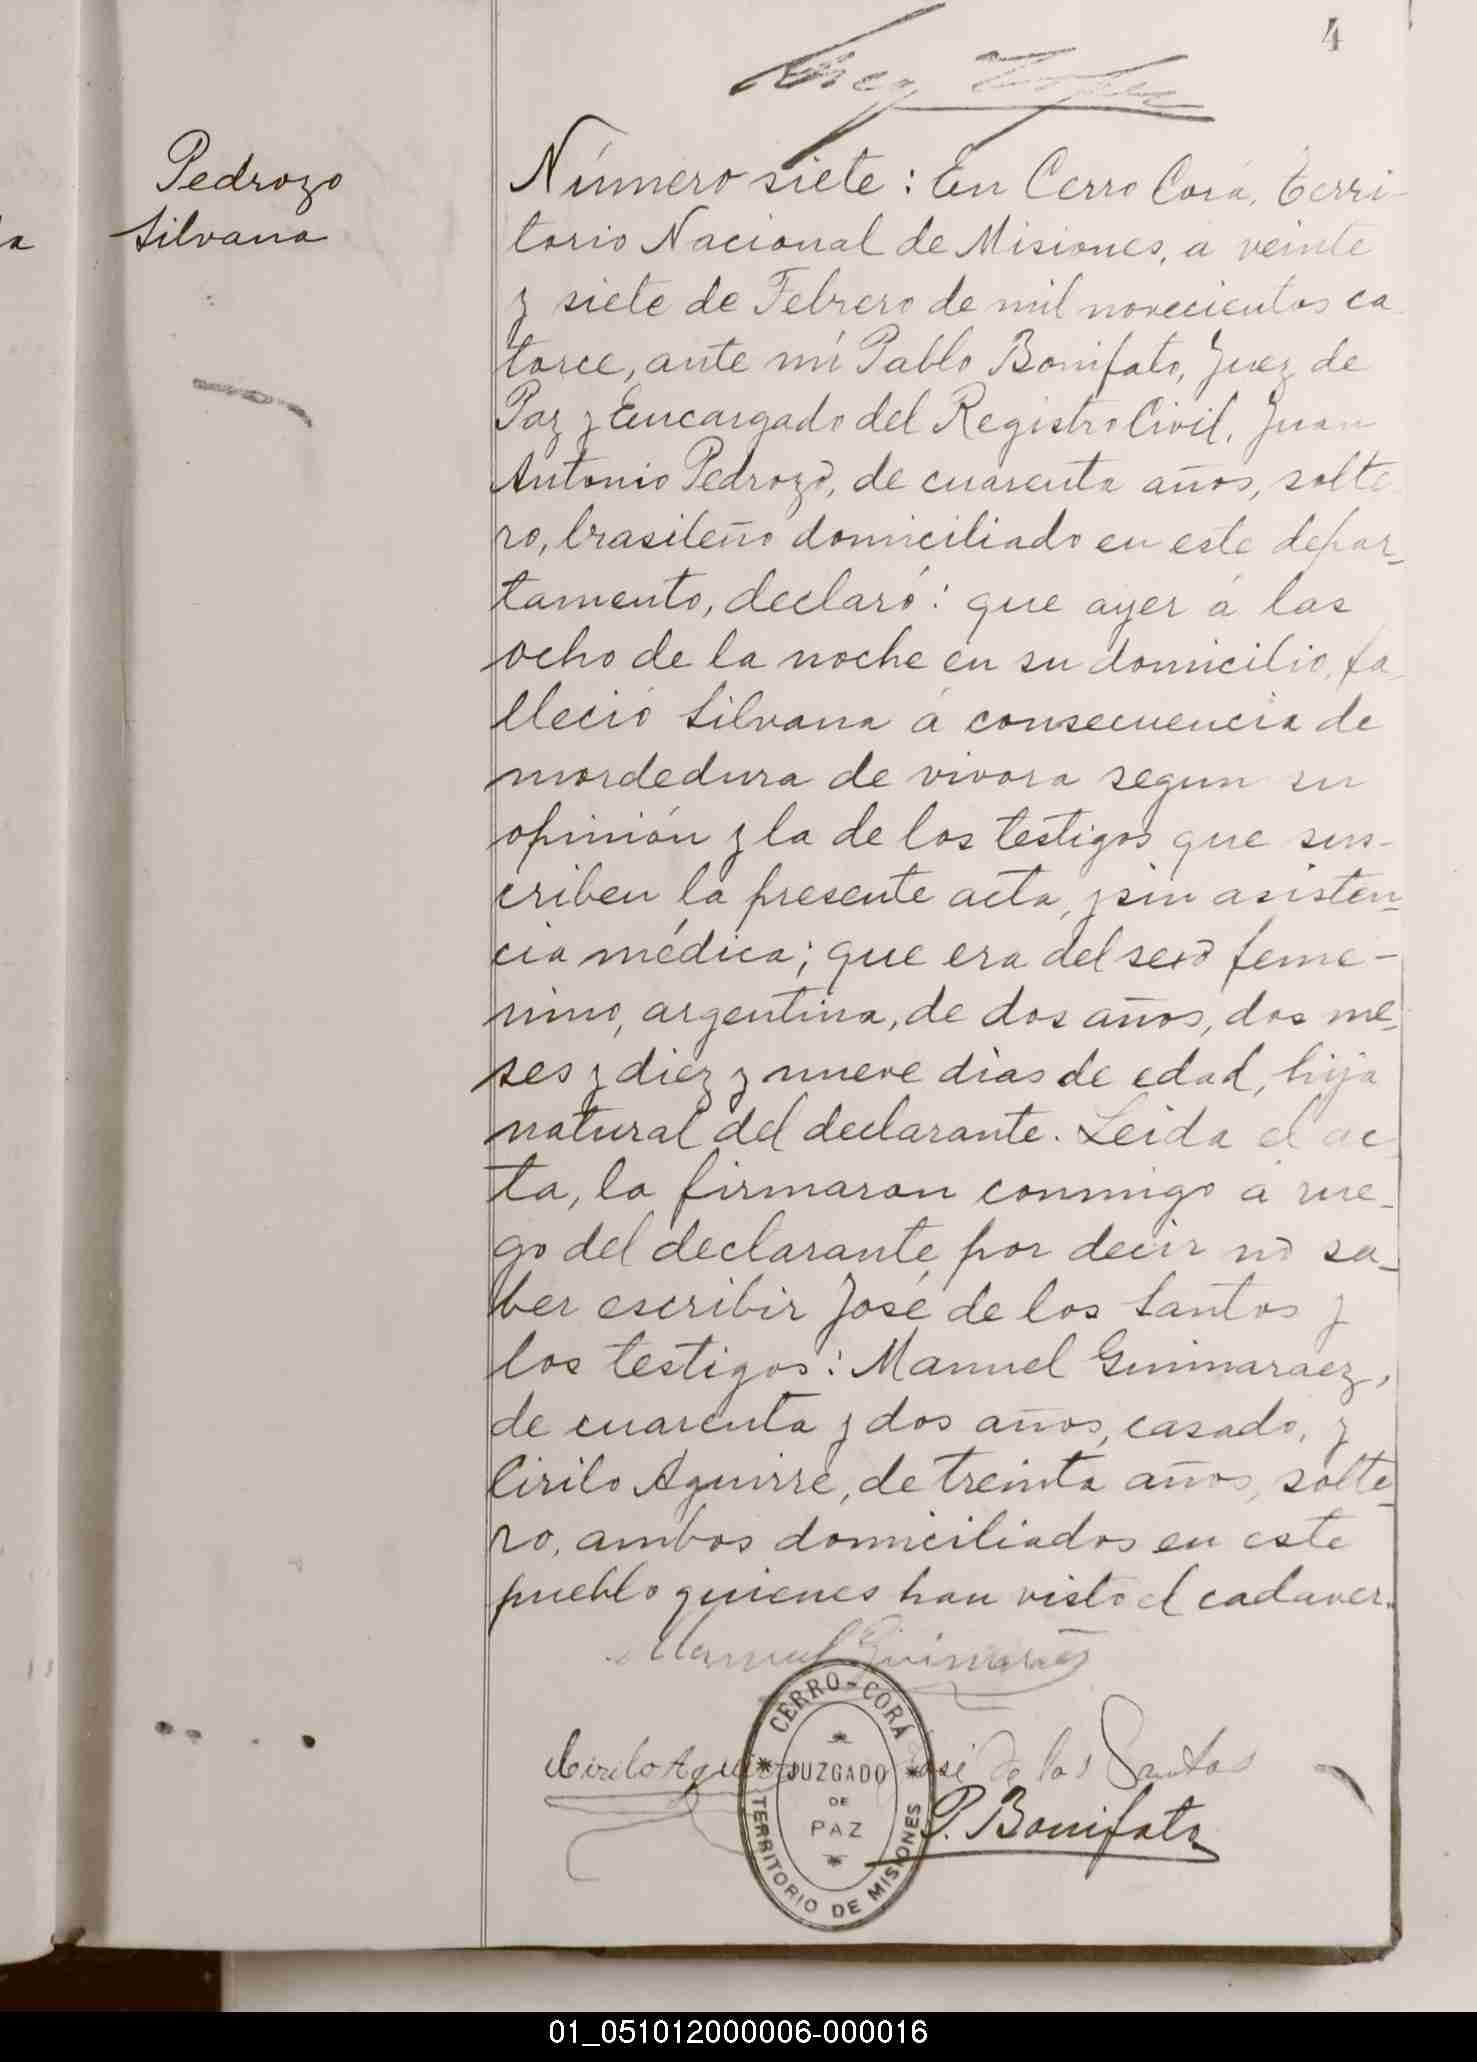 4
Pedrozo
Silvana
a
Número siete: En Cerro Corá, Terri-
torio Nacional de Misiones, á veinte
y siete de Febrero de mil novecientos ca
torce, ante mí Pablo Bonifato, Juez de
Paz y Encargado del Registro Civil, Juan
Antonio Pedrozo, de cuarenta años, solte
ro, brasileño domiciliado en este depar-
tamento, declaró: que ayer á las
ocho de la noche en su domicilio, fa
lleció Silvana á consecuencia de
mordedura de vivora segun su
opinión y la de los testigos que sus-
criben la presente acta, y sin asisten-
cia médica; que era del sexo feme-
nino, argentina, de dos años, dos me-
ses y diez y nueve dias de edad, hija
natural del declarante. Leida el ac
ta, la firmaron conmigo á rue-
go del declarante por decir no sa-
ber escribir José de los Santos y
los testigos: Manuel Guimaraez,
de cuarenta y dos años, casado, y
Cirilo Aguirre, de treinta años, solte-
ro, ambos domiciliados en este
pueblo quienes han visto el cadaver.
Manuel Guimaraes
Cirilo Aguirre José de los Santos
P. Bonifato
CERRO-CORÁ
JUZGADO
DE
PAZ
TERRITORIO DE MISIONES
01_051012000006-000016